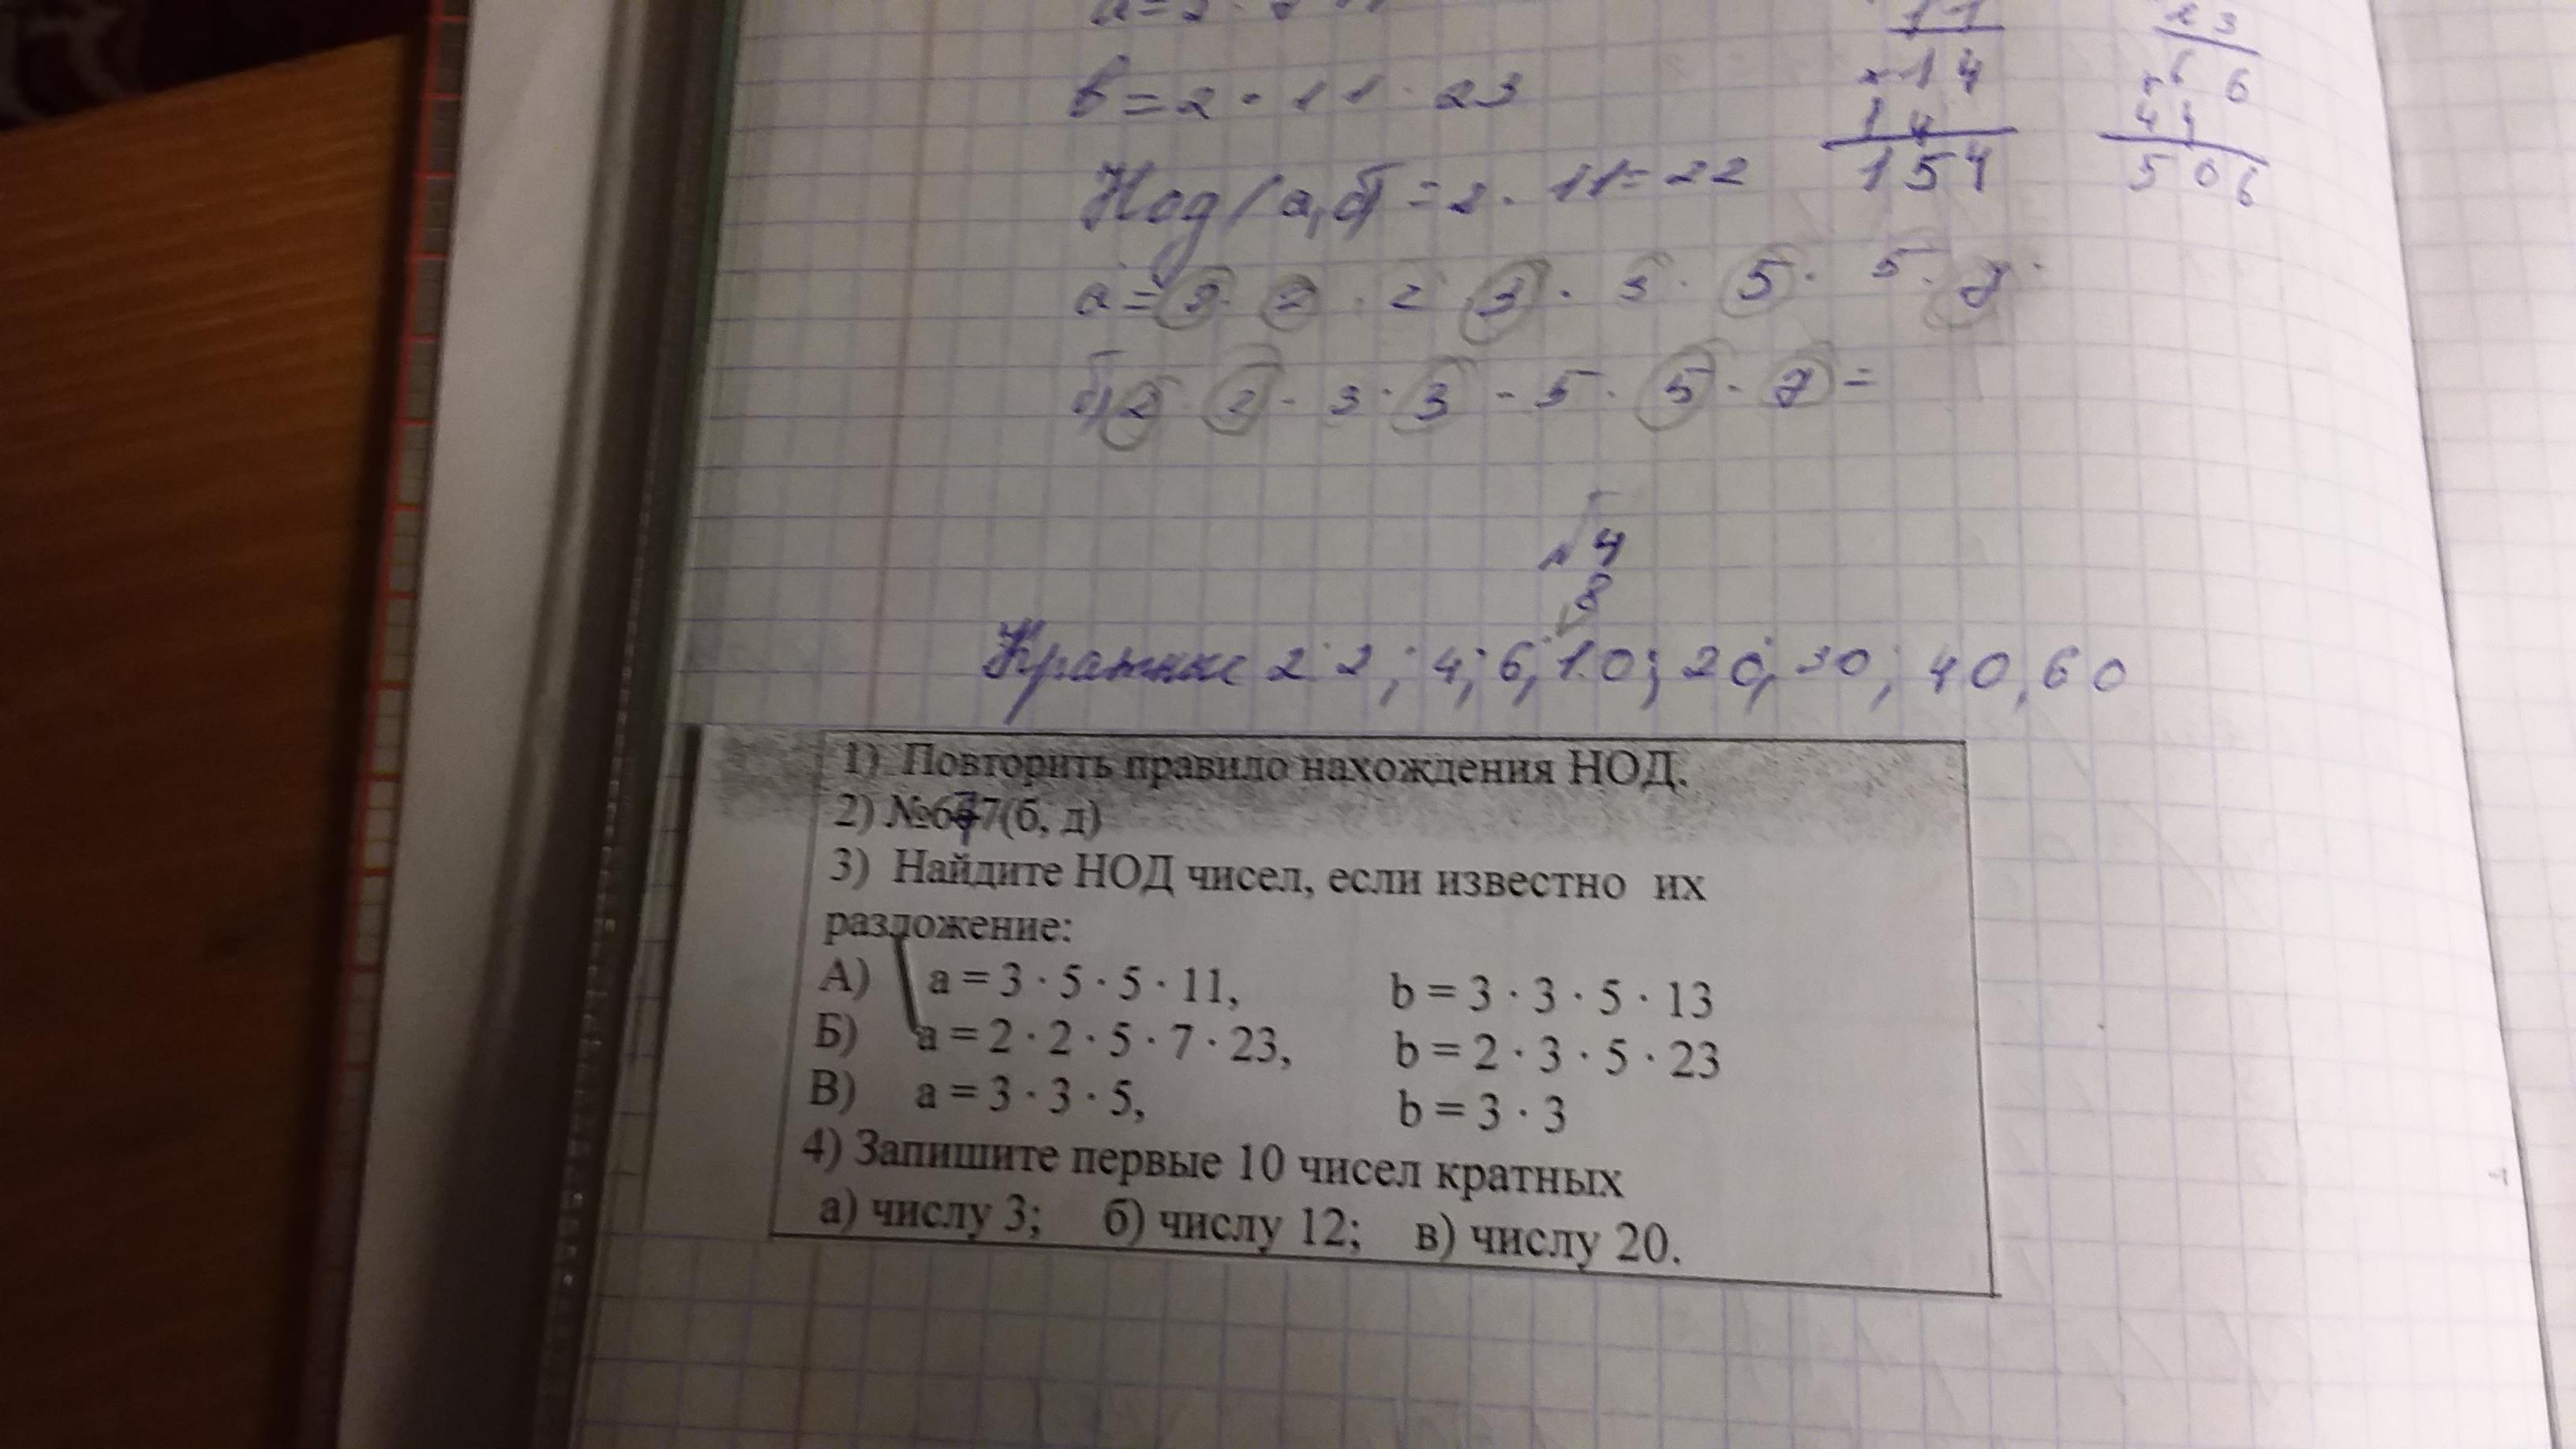 b = 2 · 11 · 23
Нод (а,б) = 2 · 11 = 22
14
14
154
66
44
506
а = 2 · 2 · 2 · 3 · 3 · 5 · 5 · 7 ·
б) 2 · 2 · 3 · 3 · 5 · 5 · 7 =
№4
8
Кратные 2: 2; 4; 6; 10; 20; 30; 40, 60
1) Повторить правило нахождения НОД.
2) №677(б, д)
3) Найдите НОД чисел, если известно их
разложение:
А) a = 3 · 5 · 5 · 11, b = 3 · 3 · 5 · 13
Б) a = 2 · 2 · 5 · 7 · 23, b = 2 · 3 · 5 · 23
В) a = 3 · 3 · 5, b = 3 · 3
4) Запишите первые 10 чисел кратных
а) числу 3; б) числу 12; в) числу 20.